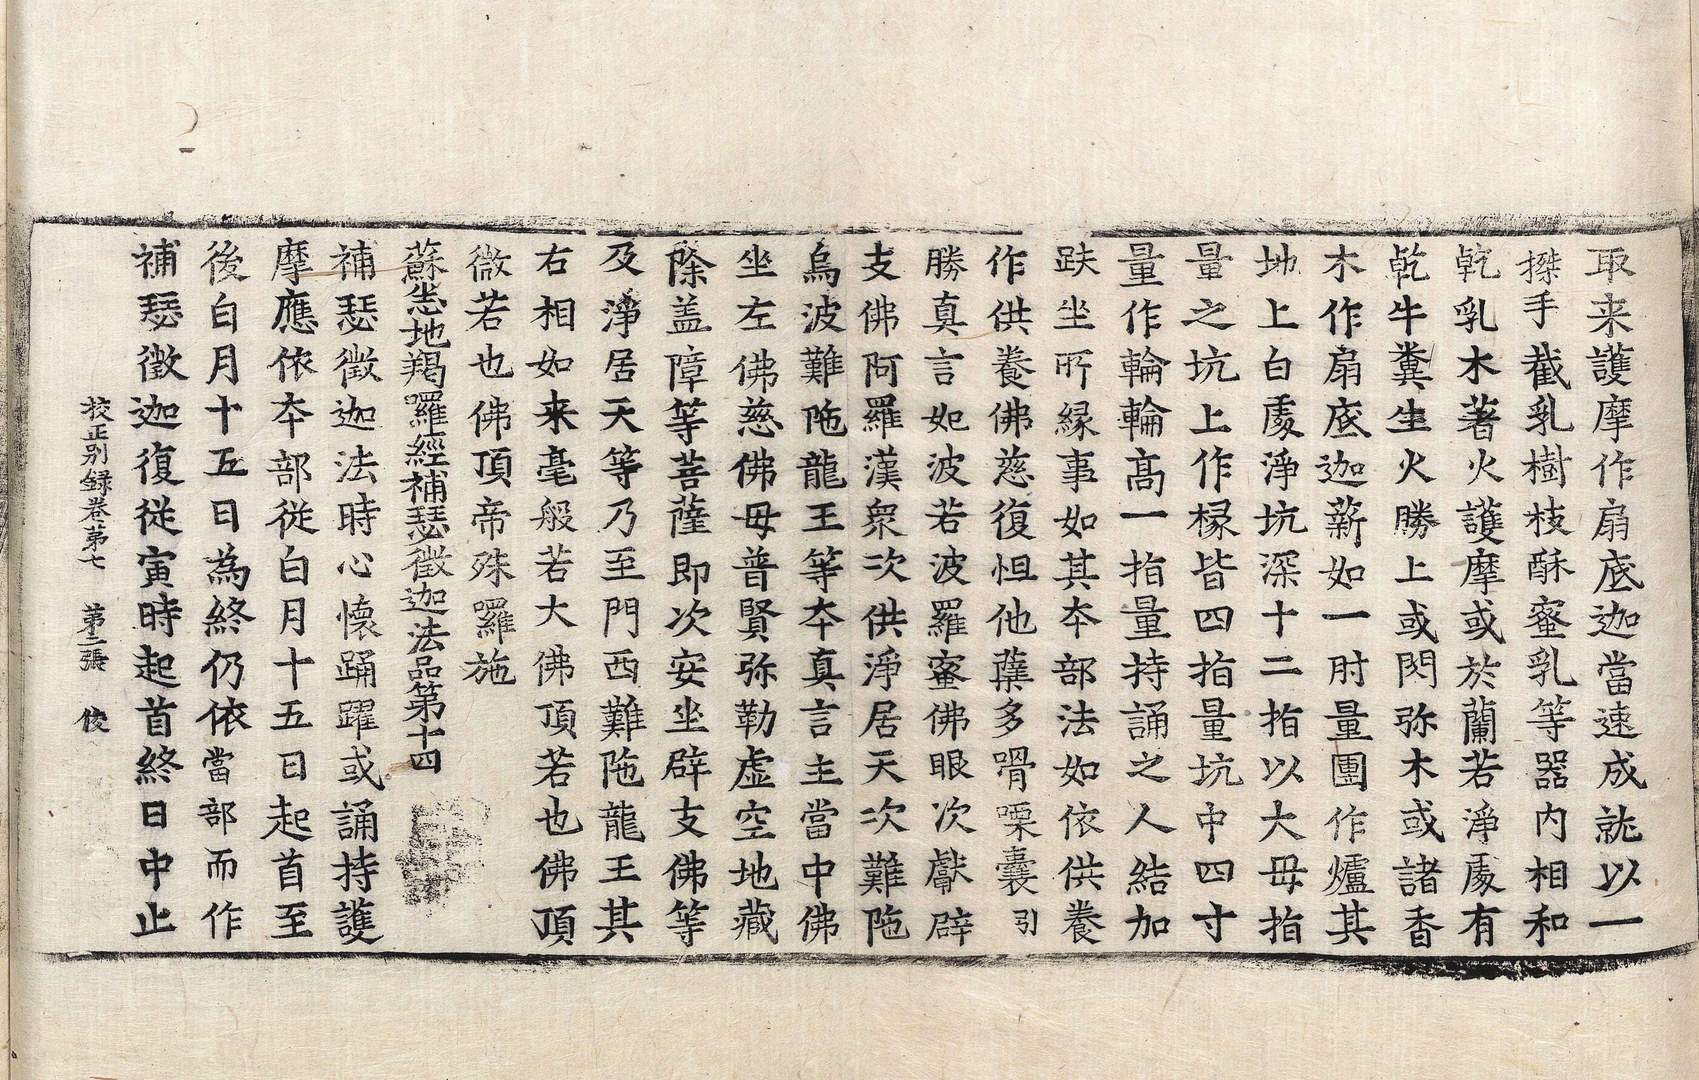 取来護摩作扇底迦當速成就以一
搩手截乳樹枝酥蜜乳等器内相和
乾乳木著火護摩或於蘭若淨處有
乾牛糞生火勝上或閃弥木或諸香
木作扇底迦薪如一肘量團作爐其
地上白處淨坑深十二指以大母指
量之坑上作椽皆四指量坑中四寸
量作輪輪高一指量持誦之人結加
趺坐所緣事如其夲部法如依供養
作供養佛慈復怛他蘖多嗗㗚囊引
勝真言如波若波羅蜜佛眼次獻辟
支佛阿羅漢衆次供淨居天次難陁
烏波難陁龍王等夲真言主當中佛
坐左佛慈佛母普賢弥勒虚空地藏
除盖障等菩薩即次安坐辟支佛等
及淨居天等乃至門西難陁龍王其
右相如来毫般若大佛頂若也佛頂
微若也佛頂帝殊囉施
蘇悉地羯囉經補瑟徵迦法品第十四
補瑟徵迦法時心懷踊躍或誦持護
摩應依夲部從白月十五日起首至
後白月十五日為終仍依當部而作
補瑟徵迦復從寅時起首終日中止
校正别録卷第七 第二張 俊